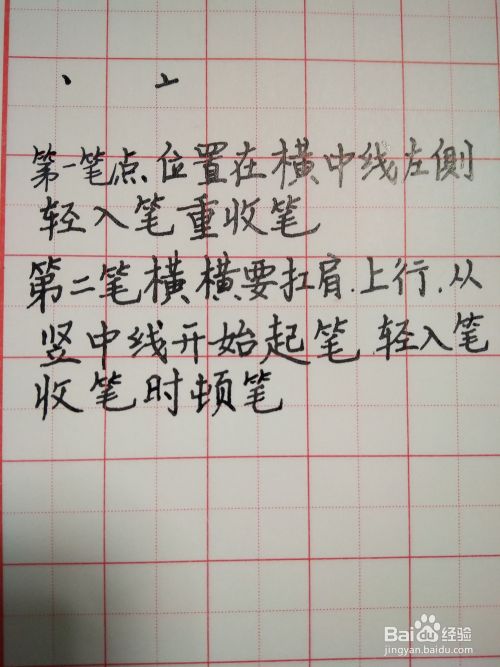 丶 亠
第一笔点位置在横中线左侧
轻入笔重收笔
第二笔横横要扛肩.上行.从
竖中线开始起笔 轻入笔
收笔时顿笔
Baidu经验
jingyan.baidu.com